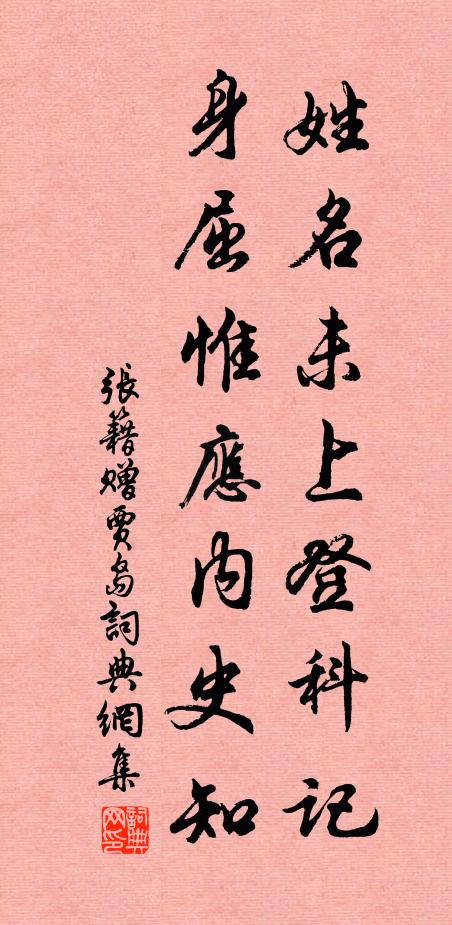 姓名未上登科記
身屈惟應内史知
張籍贈賈島詞典網集
詞典网印